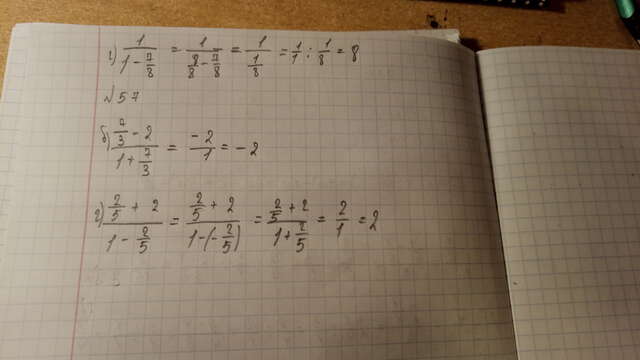 г) 1/(1 - 7/8) = 1/(8/8 - 7/8) = 1/(1/8) = 1/1 : 1/8 = 8
№57
б) (7/3 - 2)/(1 + 7/3) = -2/1 = -2
г) (2/5 + 2)/(1 - 2/5) = (2/5 + 2)/(1-(-2/5)) = (2/5 + 2)/(1 + 2/5) = 2/1 = 2